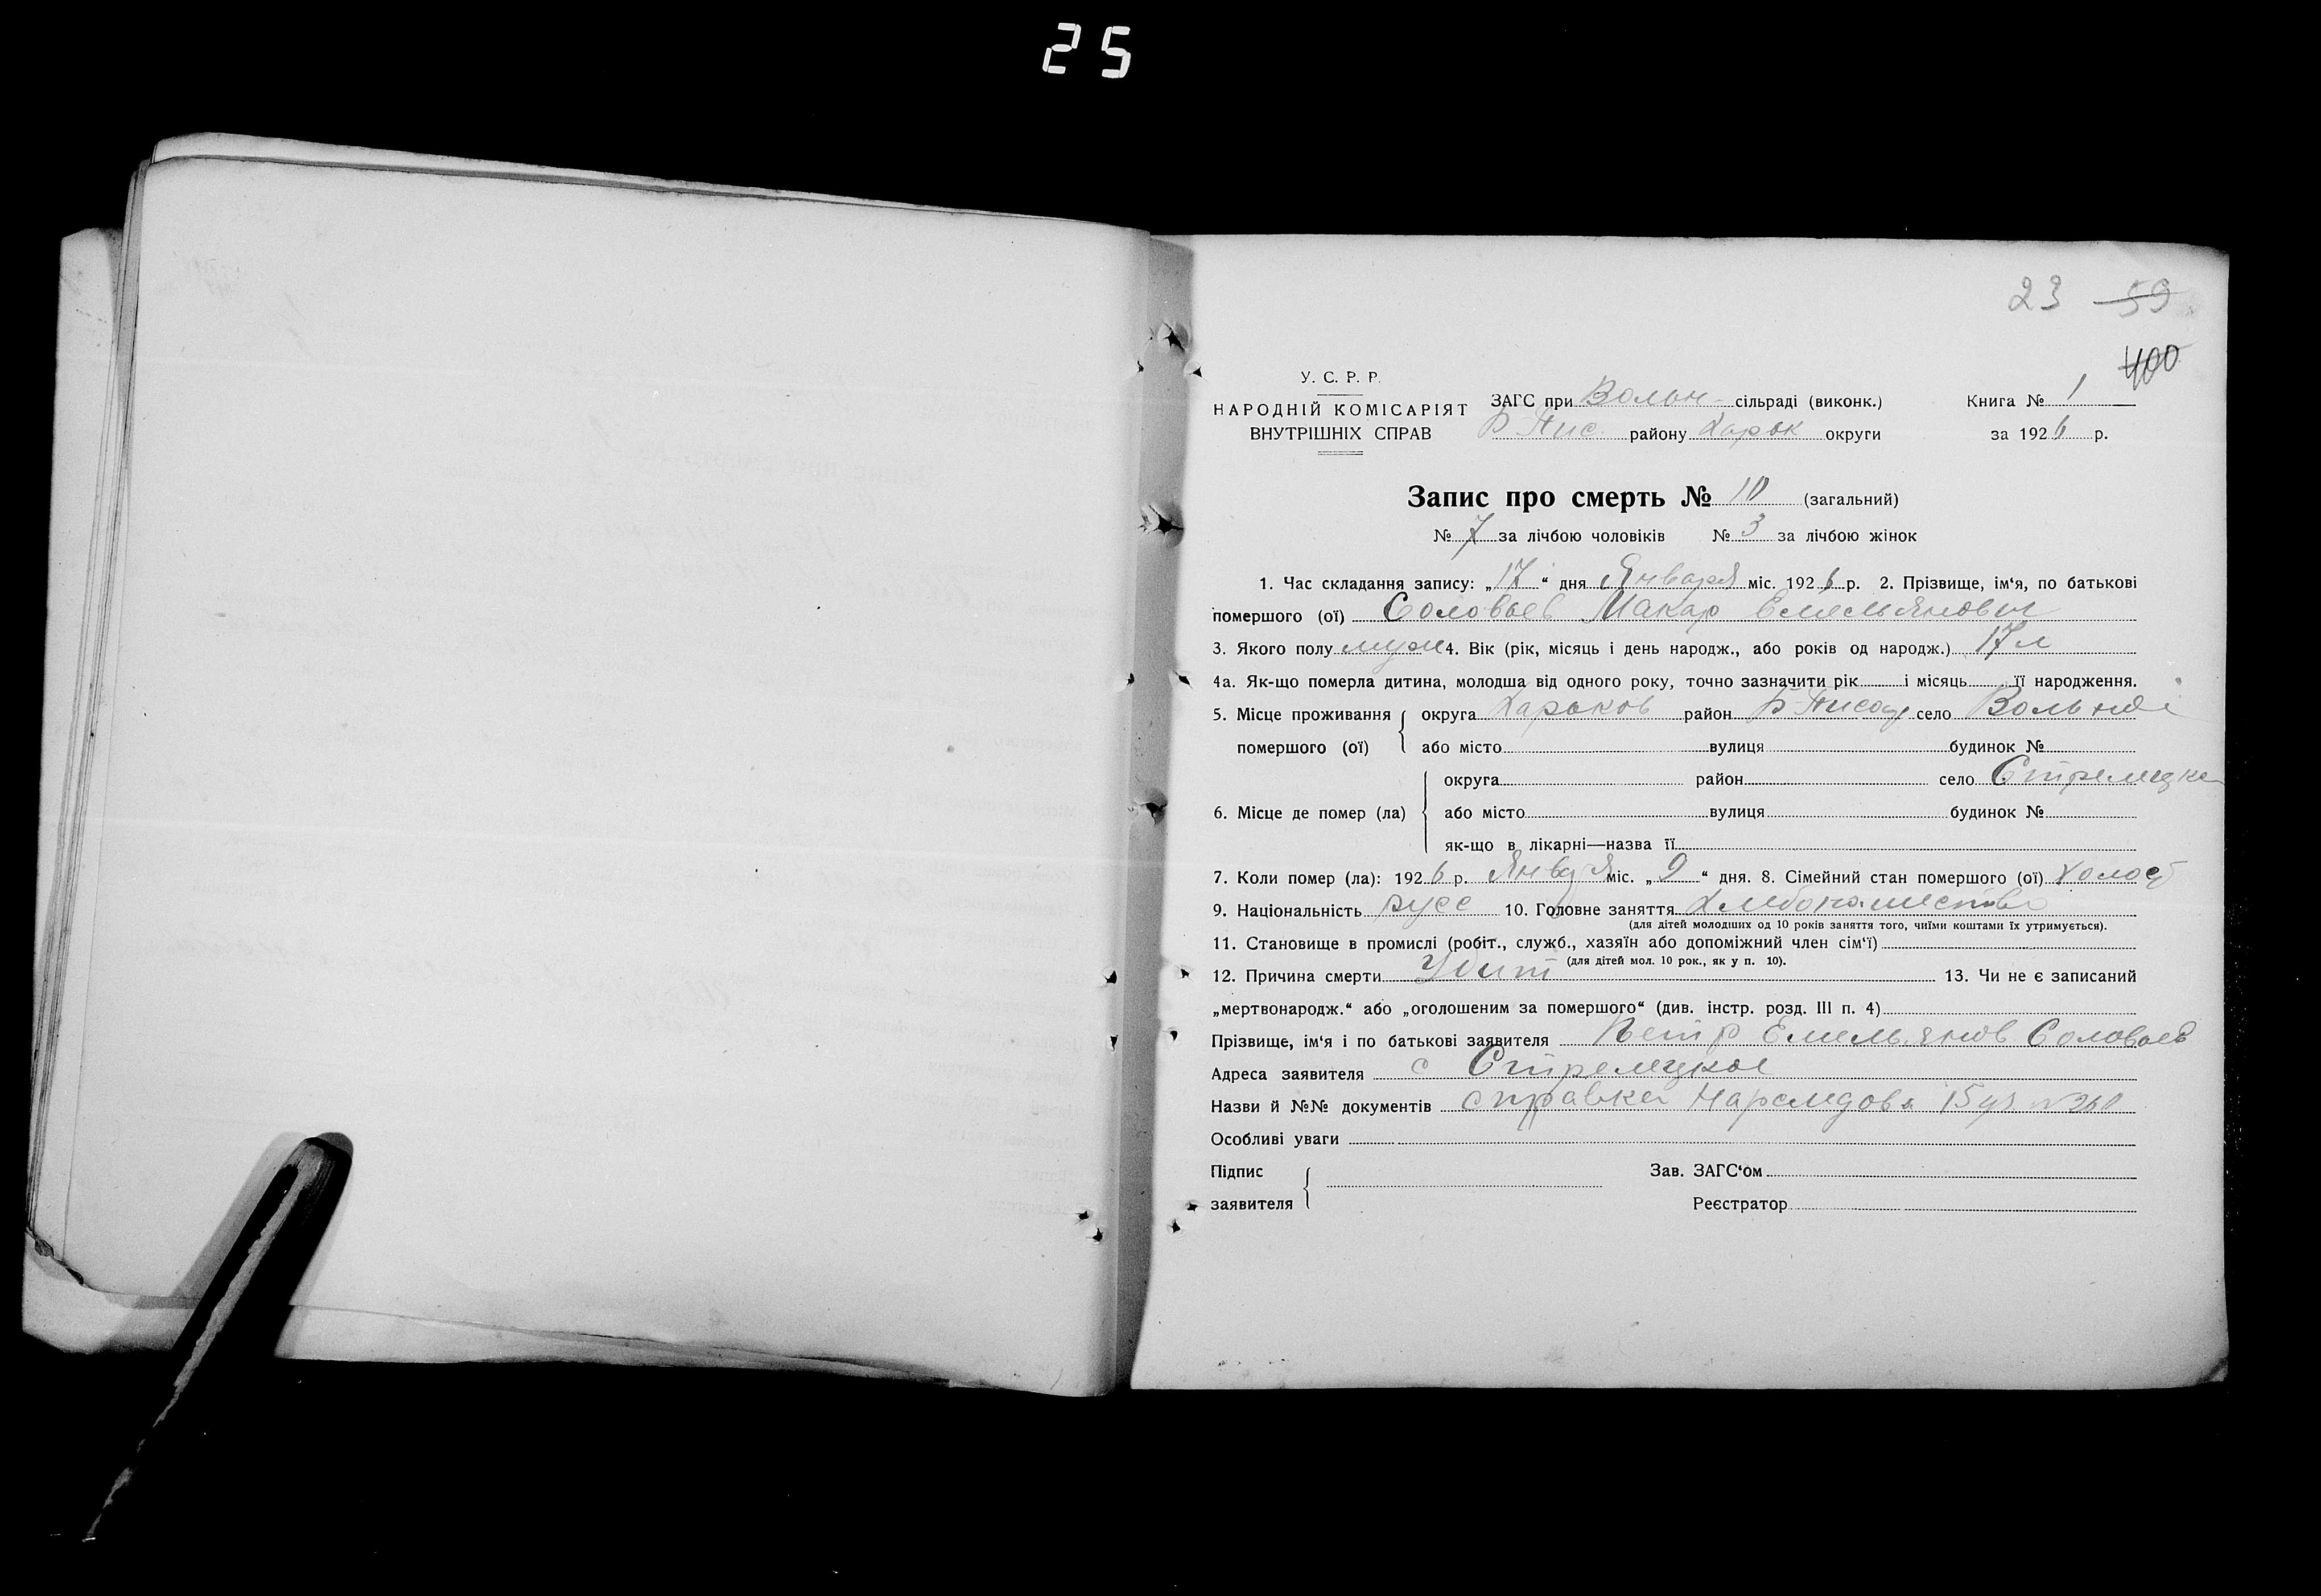 25
23 59
400
У. С. Р. Р.
НАРОДНІЙ КОМІСАРІЯТ
ВНУТРІШНІХ СПРАВ
ЗАГС при Вольн сільраді (виконк.)
Б Пис. району Харьк округи
Книга № 1
за 1926 р.
Запис про смерть № 10 (загальний)
№ 7 за лічбою чоловіків № 3 за лічбою жінок
1. Час складання запису: „17“ дня Января міс. 1926 р. 2. Прізвище, ім‘я, по батькові
помершого (ої) Соловьев Макар Емельянович
3. Якого полу муж 4. Вік (рік, місяць і день народж., або років од народж.) 17 л
4а. Як-що померла дитина, молодша від одного року, точно зазначити рік і місяць її народження.
5. Місце проживання помершого (ої) округа Харьков район Б Писар село Вольної
або місто вулиця будинок №
6. Місце де помер (ла) округа район село Стрелецкое
або місто вулиця будинок №
як-що в лікарні—назва її
7. Коли помер (ла): 1926 р. Января міс. „9“ дня. 8. Сімейний стан помершого (ої) холост
9. Національність русс 10. Головне заняття Хлебопашество
(для дітей молодших од 10 років заняття того, чиїми коштами їх утримується).
11. Становище в промислі (робіт., служб., хазяїн або допоміжний член сім‘ї)
(для дітей мол. 10 рок., як у п. 10).
12. Причина смерти Убит 13. Чи не є записаний
„мертвонародж.“ або „оголошеним за помершого“ (див. інстр. розд. III п. 4)
Прізвище, ім‘я і по батькові заявителя Петр Емельянов Соловьев
Адреса заявителя с Стрелецкое
Назви й №№ документів справка Нарследов 15 уч №260
Особливі уваги
Підпис заявителя
Зав. ЗАГС‘ом
Реєстратор